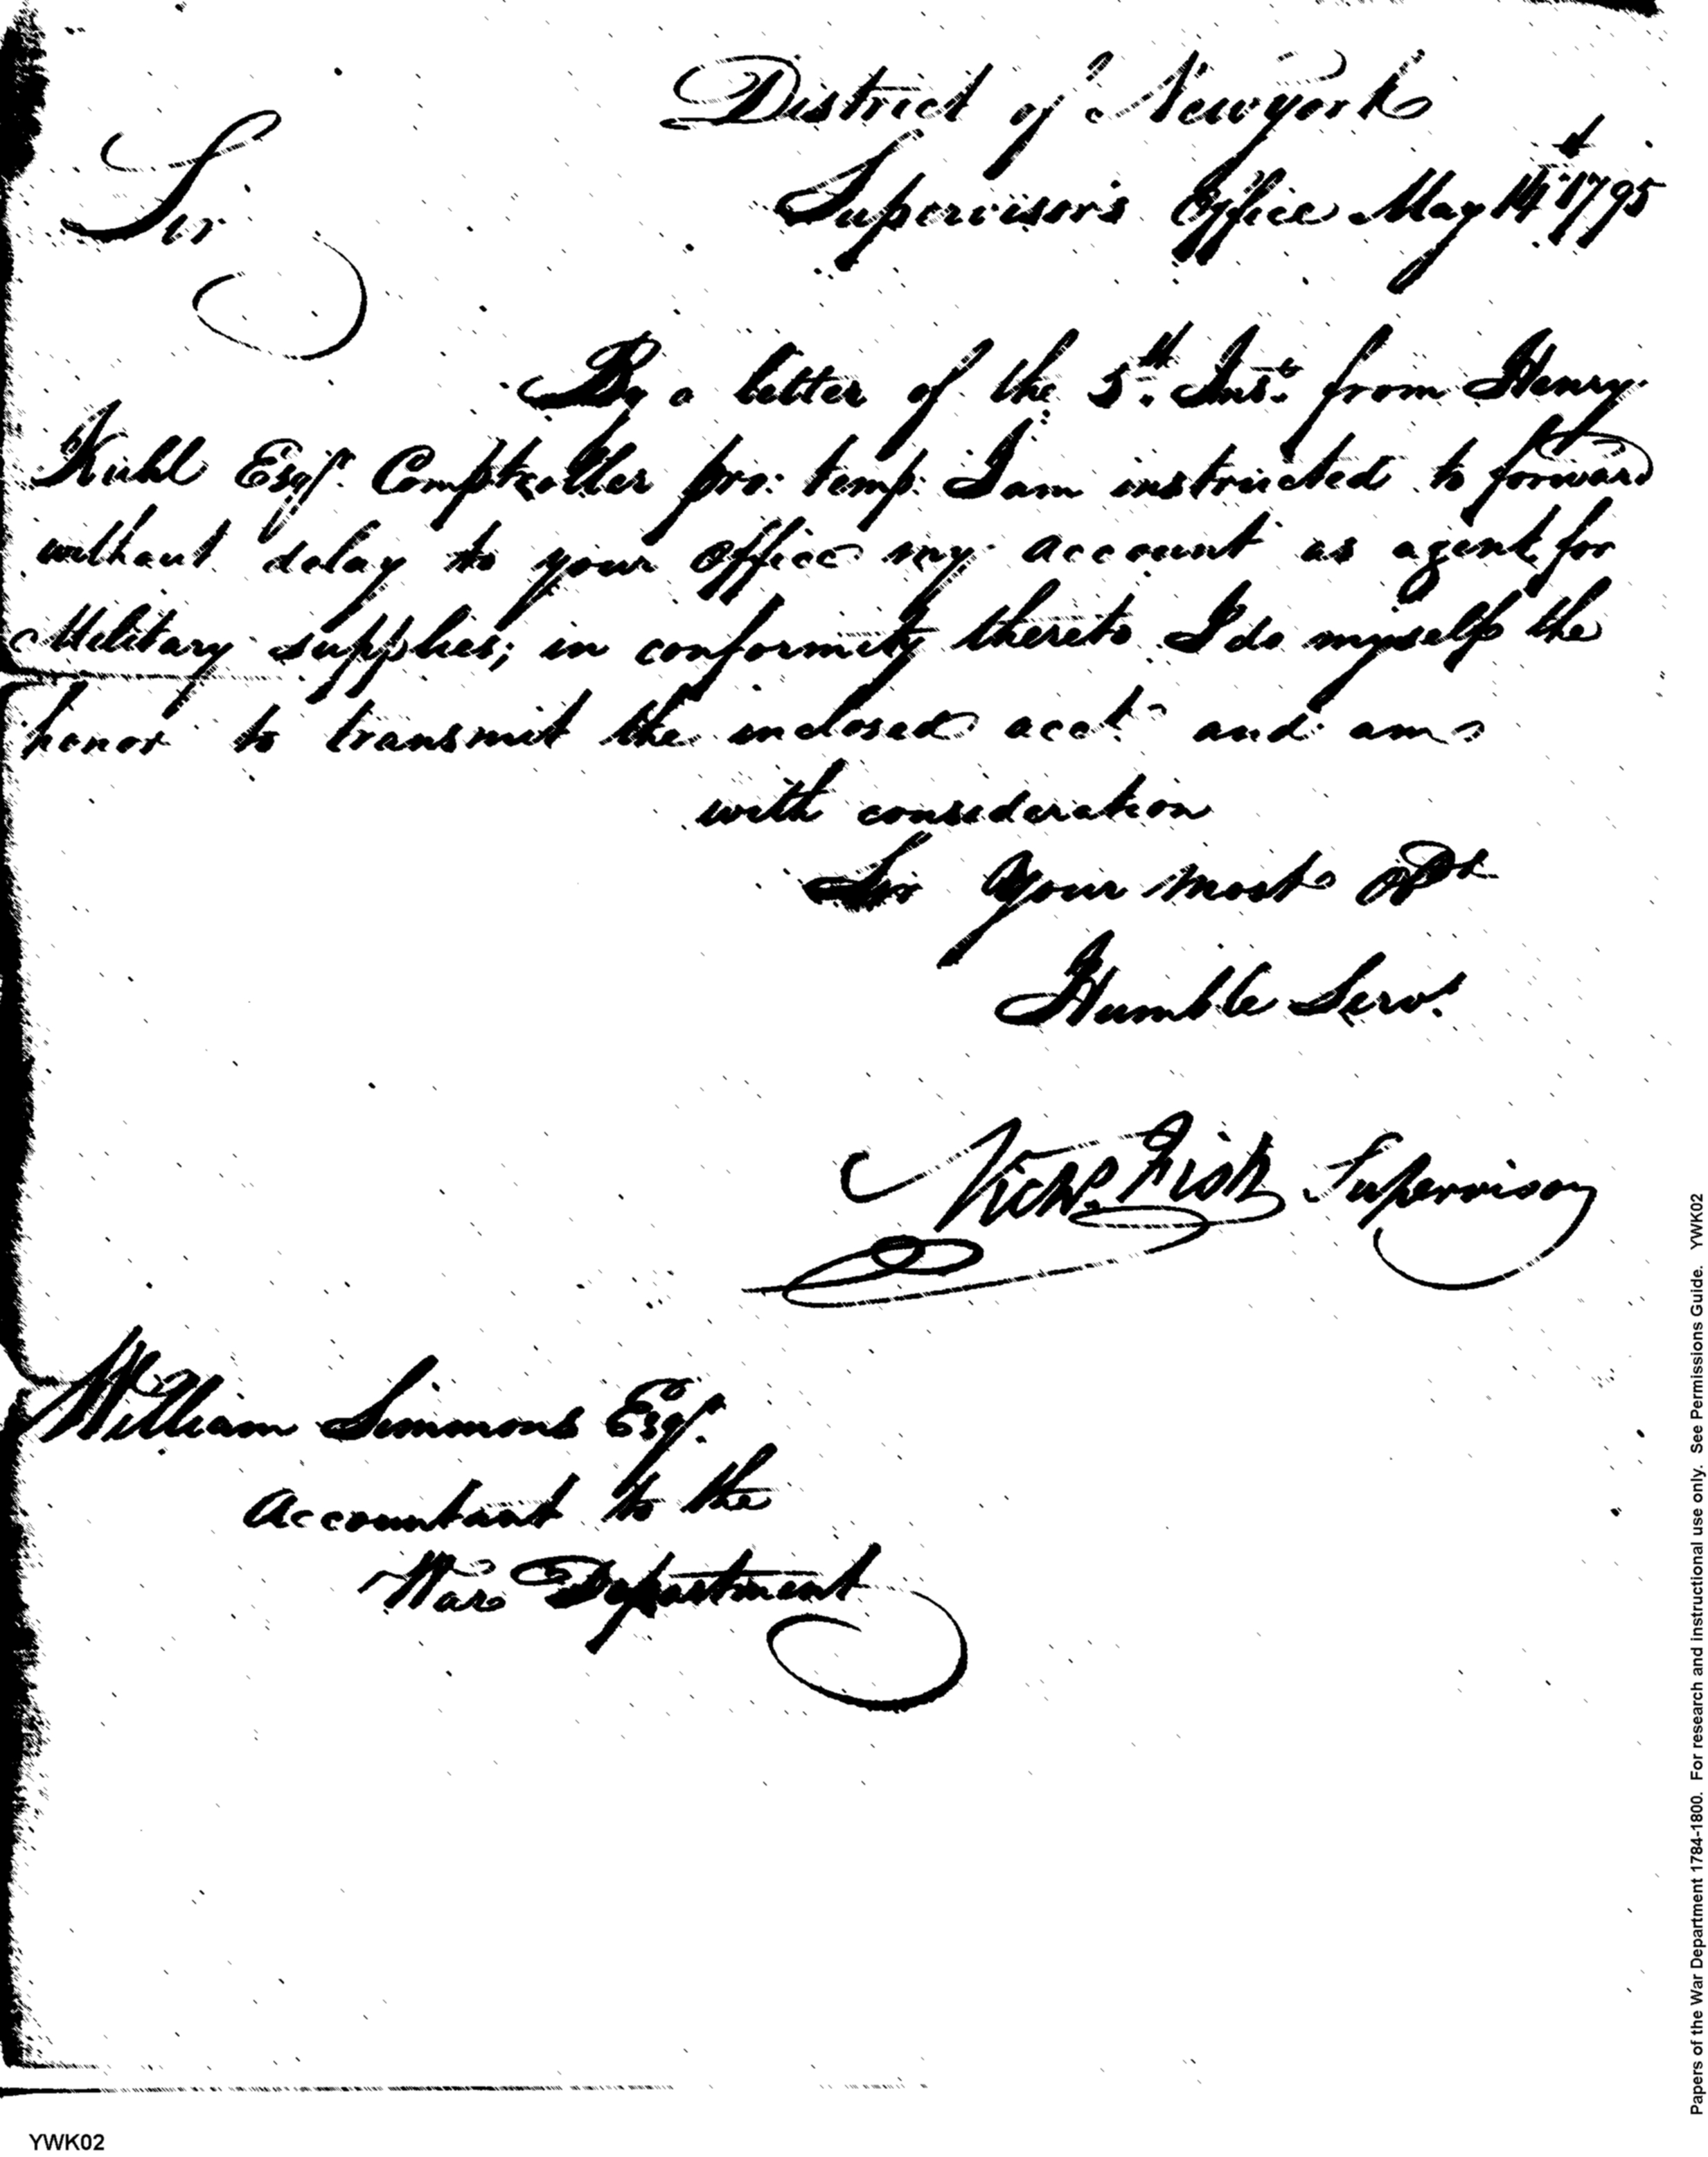 District of Newyork
Supervisor's Office May 14t 1795
Sir
By a letter of the 5th. Inst. from Henry
Kuhl Esqr. Comptroller pro: temp: I am instructed to forward
without delay to your office my account as agent for
Military supplies; in conformity thereto I do myself the
honor to transmit the inclosed acct. and am
with consideration
Sir your most obt
Humble Servt.
Nichs. Fish Supervisor
William Simmons Esqr.
Accountant to the
War Department
YWK02
Papers of the War Department 1784-1800. For research and instructional use only. See Permissions Guide. YWK02